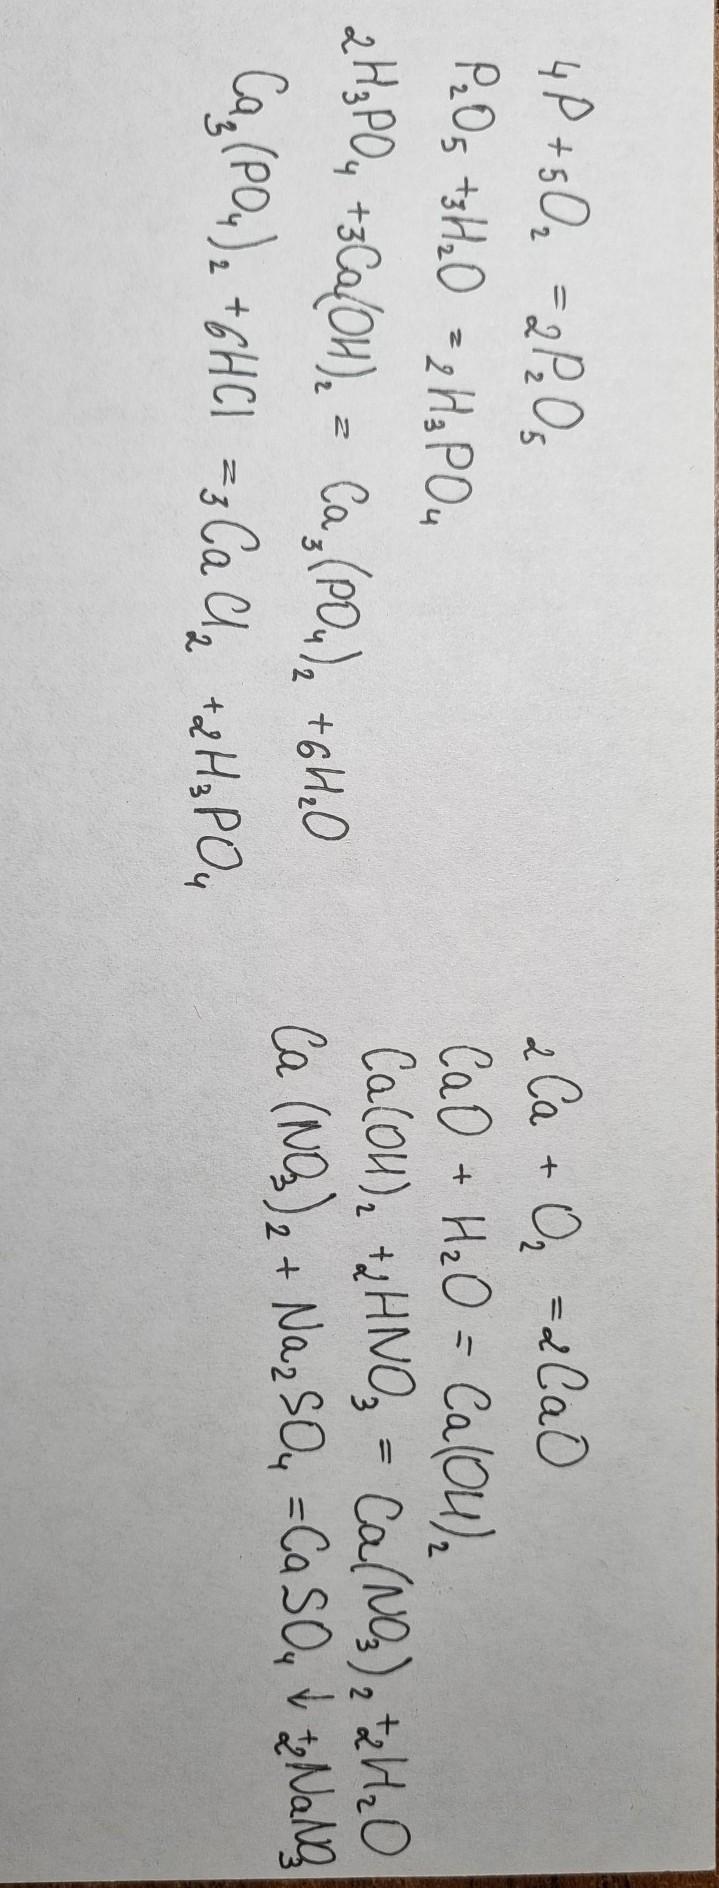 4P + 5O₂ = 2P₂O₅
P₂O₅ + 3H₂O = 2H₃PO₄
2H₃PO₄ + 3Ca(OH)₂ = Ca₃(PO₄)₂ + 6H₂O
Ca₃(PO₄)₂ + 6HCl = 3CaCl₂ + 2H₃PO₄
2Ca + O₂ = 2CaO
CaO + H₂O = Ca(OH)₂
Ca(OH)₂ + 2HNO₃ = Ca(NO₃)₂ + 2H₂O
Ca(NO₃)₂ + Na₂SO₄ = CaSO₄↓ + 2NaNO₃